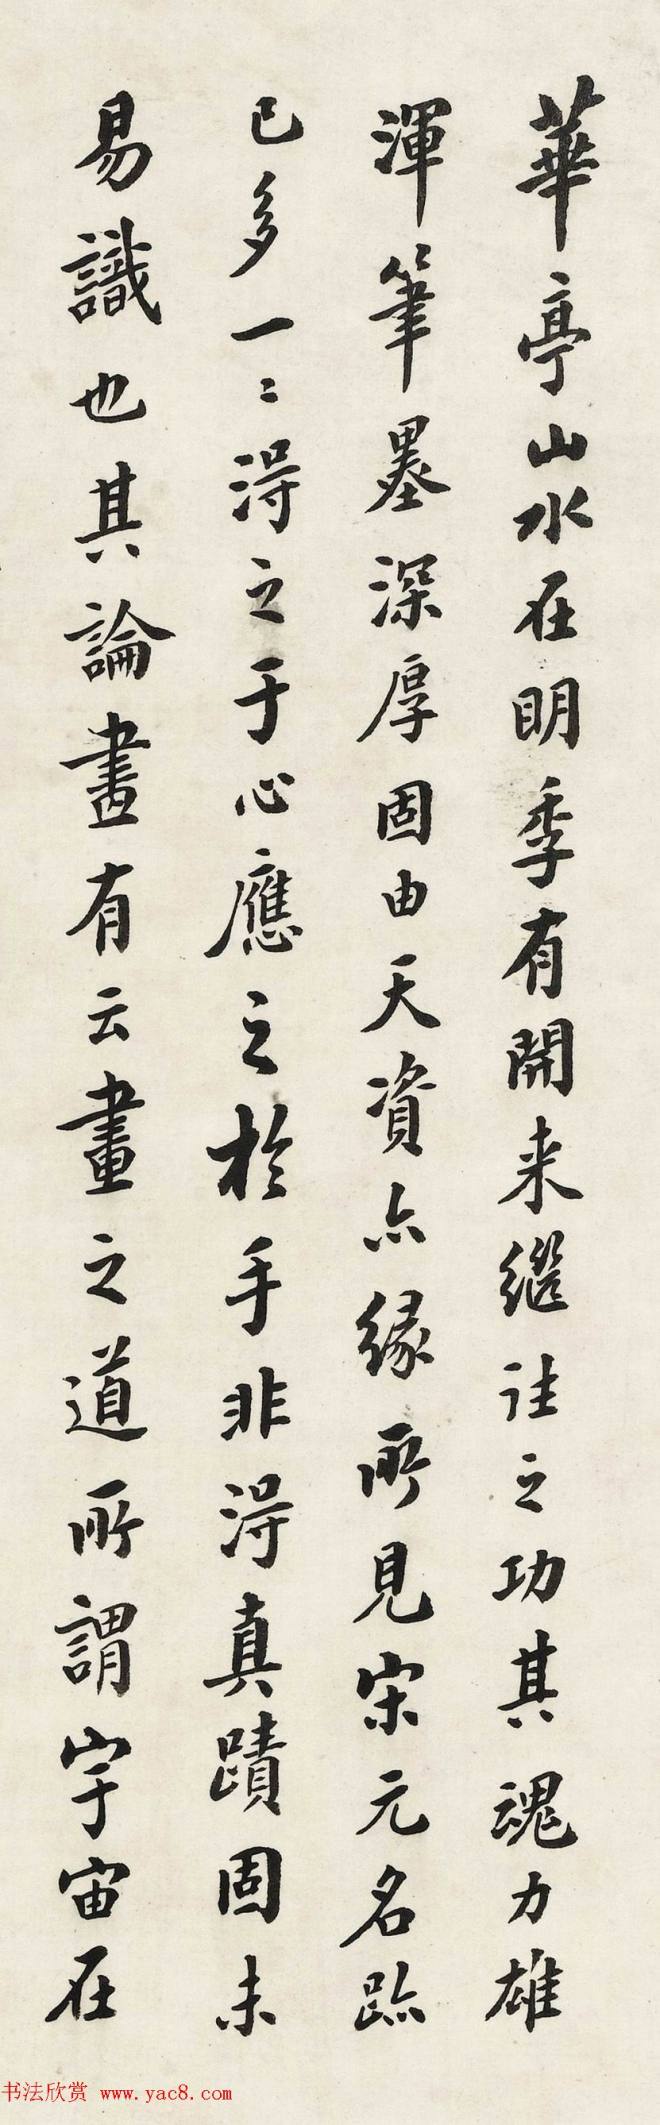 華亭山水在明季有開来繼往之功其魂力雄
渾筆墨深厚固由天資亦緣所見宋元名跡
已多一〻淂之于心應之於手非淂真蹟固未
易識也其論畫有云畫之道所謂宇宙在
书法欣赏 www.yac8.com